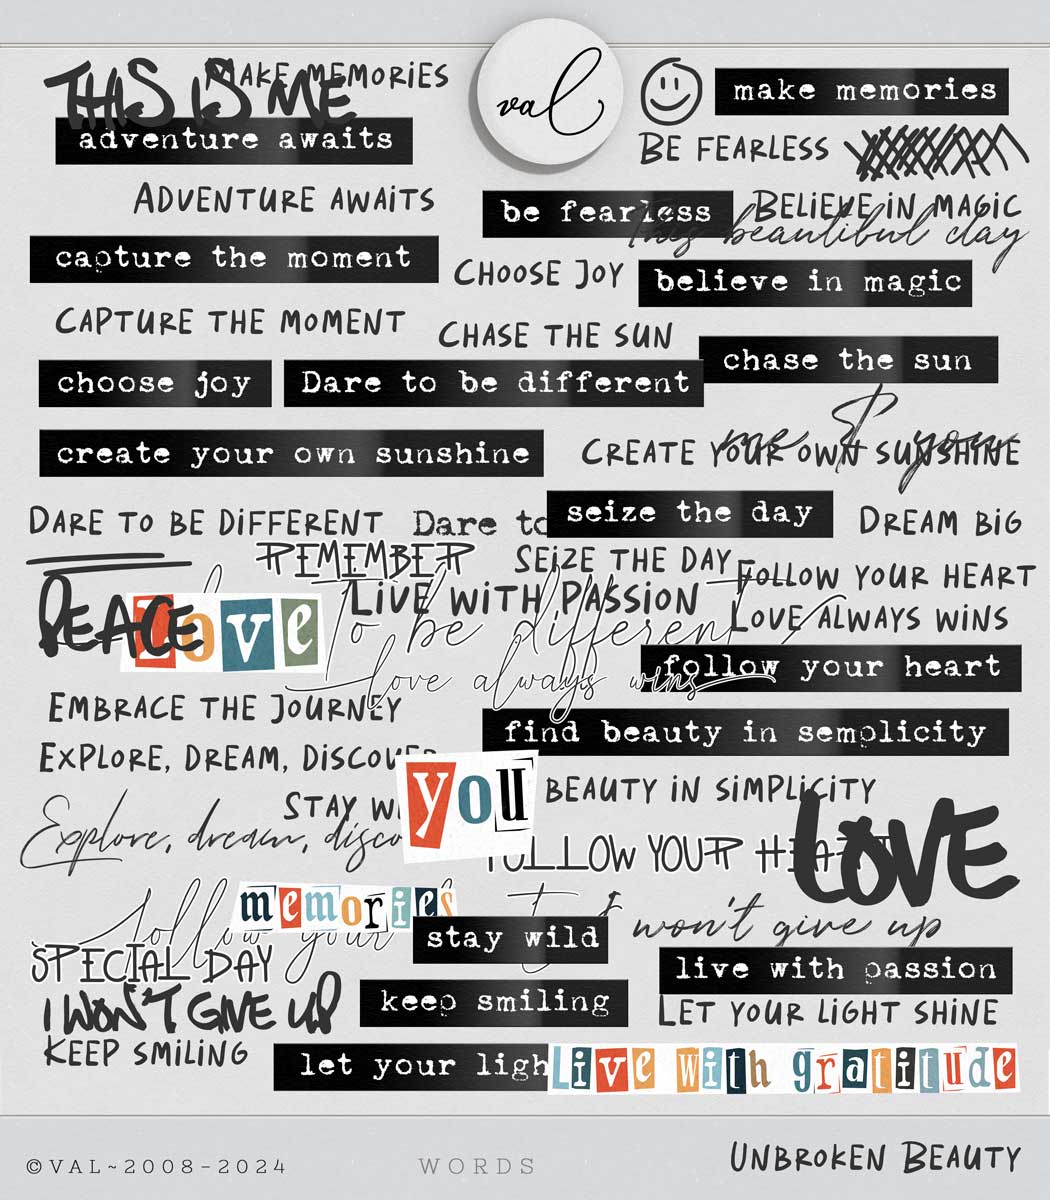 THIS IS ME
MAKE MEMORIES
val
make memories
adventure awaits
BE FEARLESS
ADVENTURE AWAITS
be fearless
BELIEVE IN MAGIC
This beautiful day
capture the moment
CHOOSE JOY
believe in magic
CAPTURE THE MOMENT
CHASE THE SUN
chase the sun
choose joy
Dare to be different
me & you
create your own sunshine
CREATE YOUR OWN SUNSHINE
seize the day
DARE TO BE DIFFERENT
Dare to
DREAM BIG
REMEMBER
SEIZE THE DAY
FOLLOW YOUR HEART
LIVE WITH PASSION
PEACE
Love
To be different
LOVE ALWAYS WINS
follow your heart
love always wins
EMBRACE THE JOURNEY
find beauty in semplicity
EXPLORE, DREAM, DISCOVER
you
BEAUTY IN SIMPLICITY
STAY W
Explore, dream, disco
FOLLOW YOUR HEART
LOVE
memories
follow your
I won't give up
stay wild
SPECIAL DAY
live with passion
I WON'T GIVE UP
keep smiling
LET YOUR LIGHT SHINE
KEEP SMILING
let your ligh
Live with gratitude
©VAL~2008-2024
WORDS
UNBROKEN BEAUTY